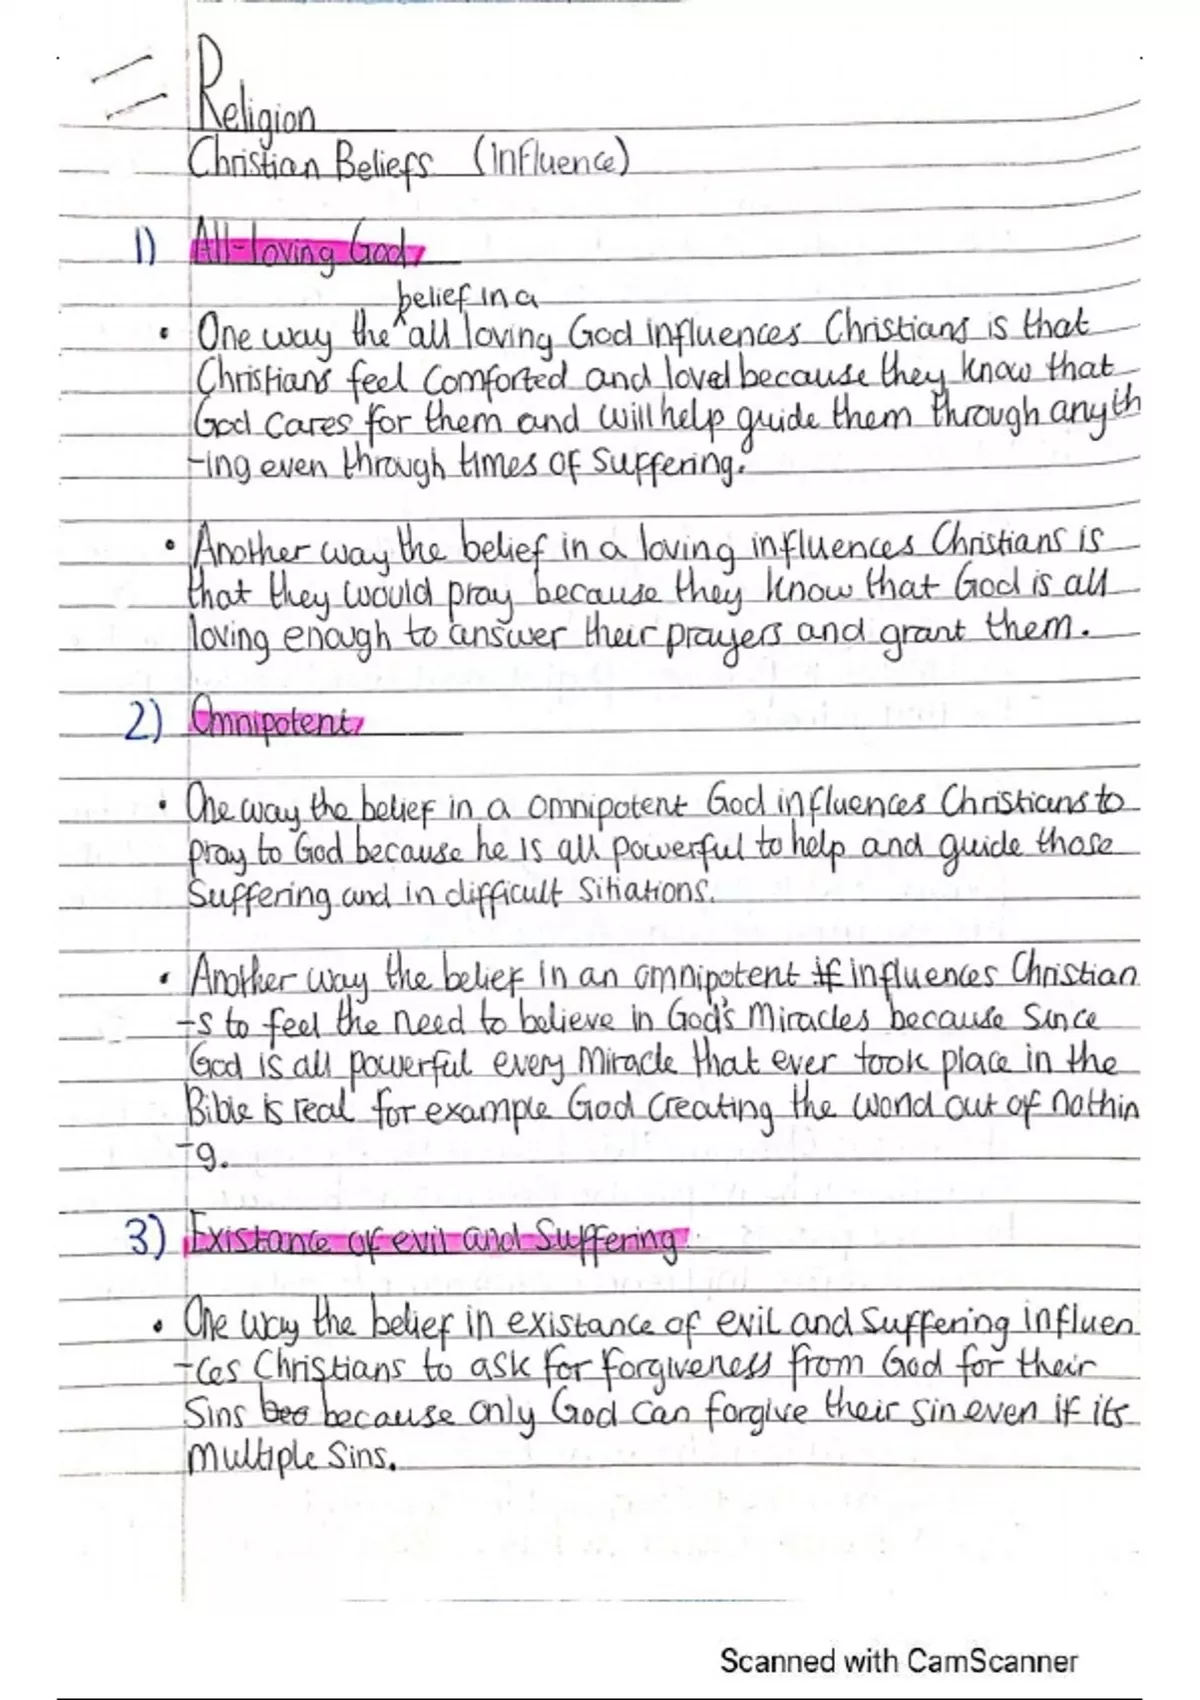 Religion
Christian Beliefs (Influence)
1) All-loving God
belief in a
• One way the ^ all loving God influences Christians is that
Christians feel comforted and loved because they know that
God cares for them and will help guide them through anyth
-ing even through times of suffering.
• Another way the belief in a loving influences Christians is
that they would pray because they know that God is all
loving enough to answer their prayers and grant them.
2) Omnipotent
• One way the belief in a omnipotent God influences Christians to
pray to God because he is all powerful to help and guide those
Suffering and in difficult sitiations.
• Another way the belief in an omnipotent if influences Christian
-s to feel the need to believe in God's Miracles because since
God is all powerful every Miracle that ever took place in the
Bible is real for example God Creating the world out of nothin
-g.
3) Existance of evil and Suffering
• One way the belief in existance of evil and suffering influen
-ces Christians to ask for forgiveness from God for their
Sins bea because only God can forgive their sin even if its
multiple sins.
Scanned with CamScanner